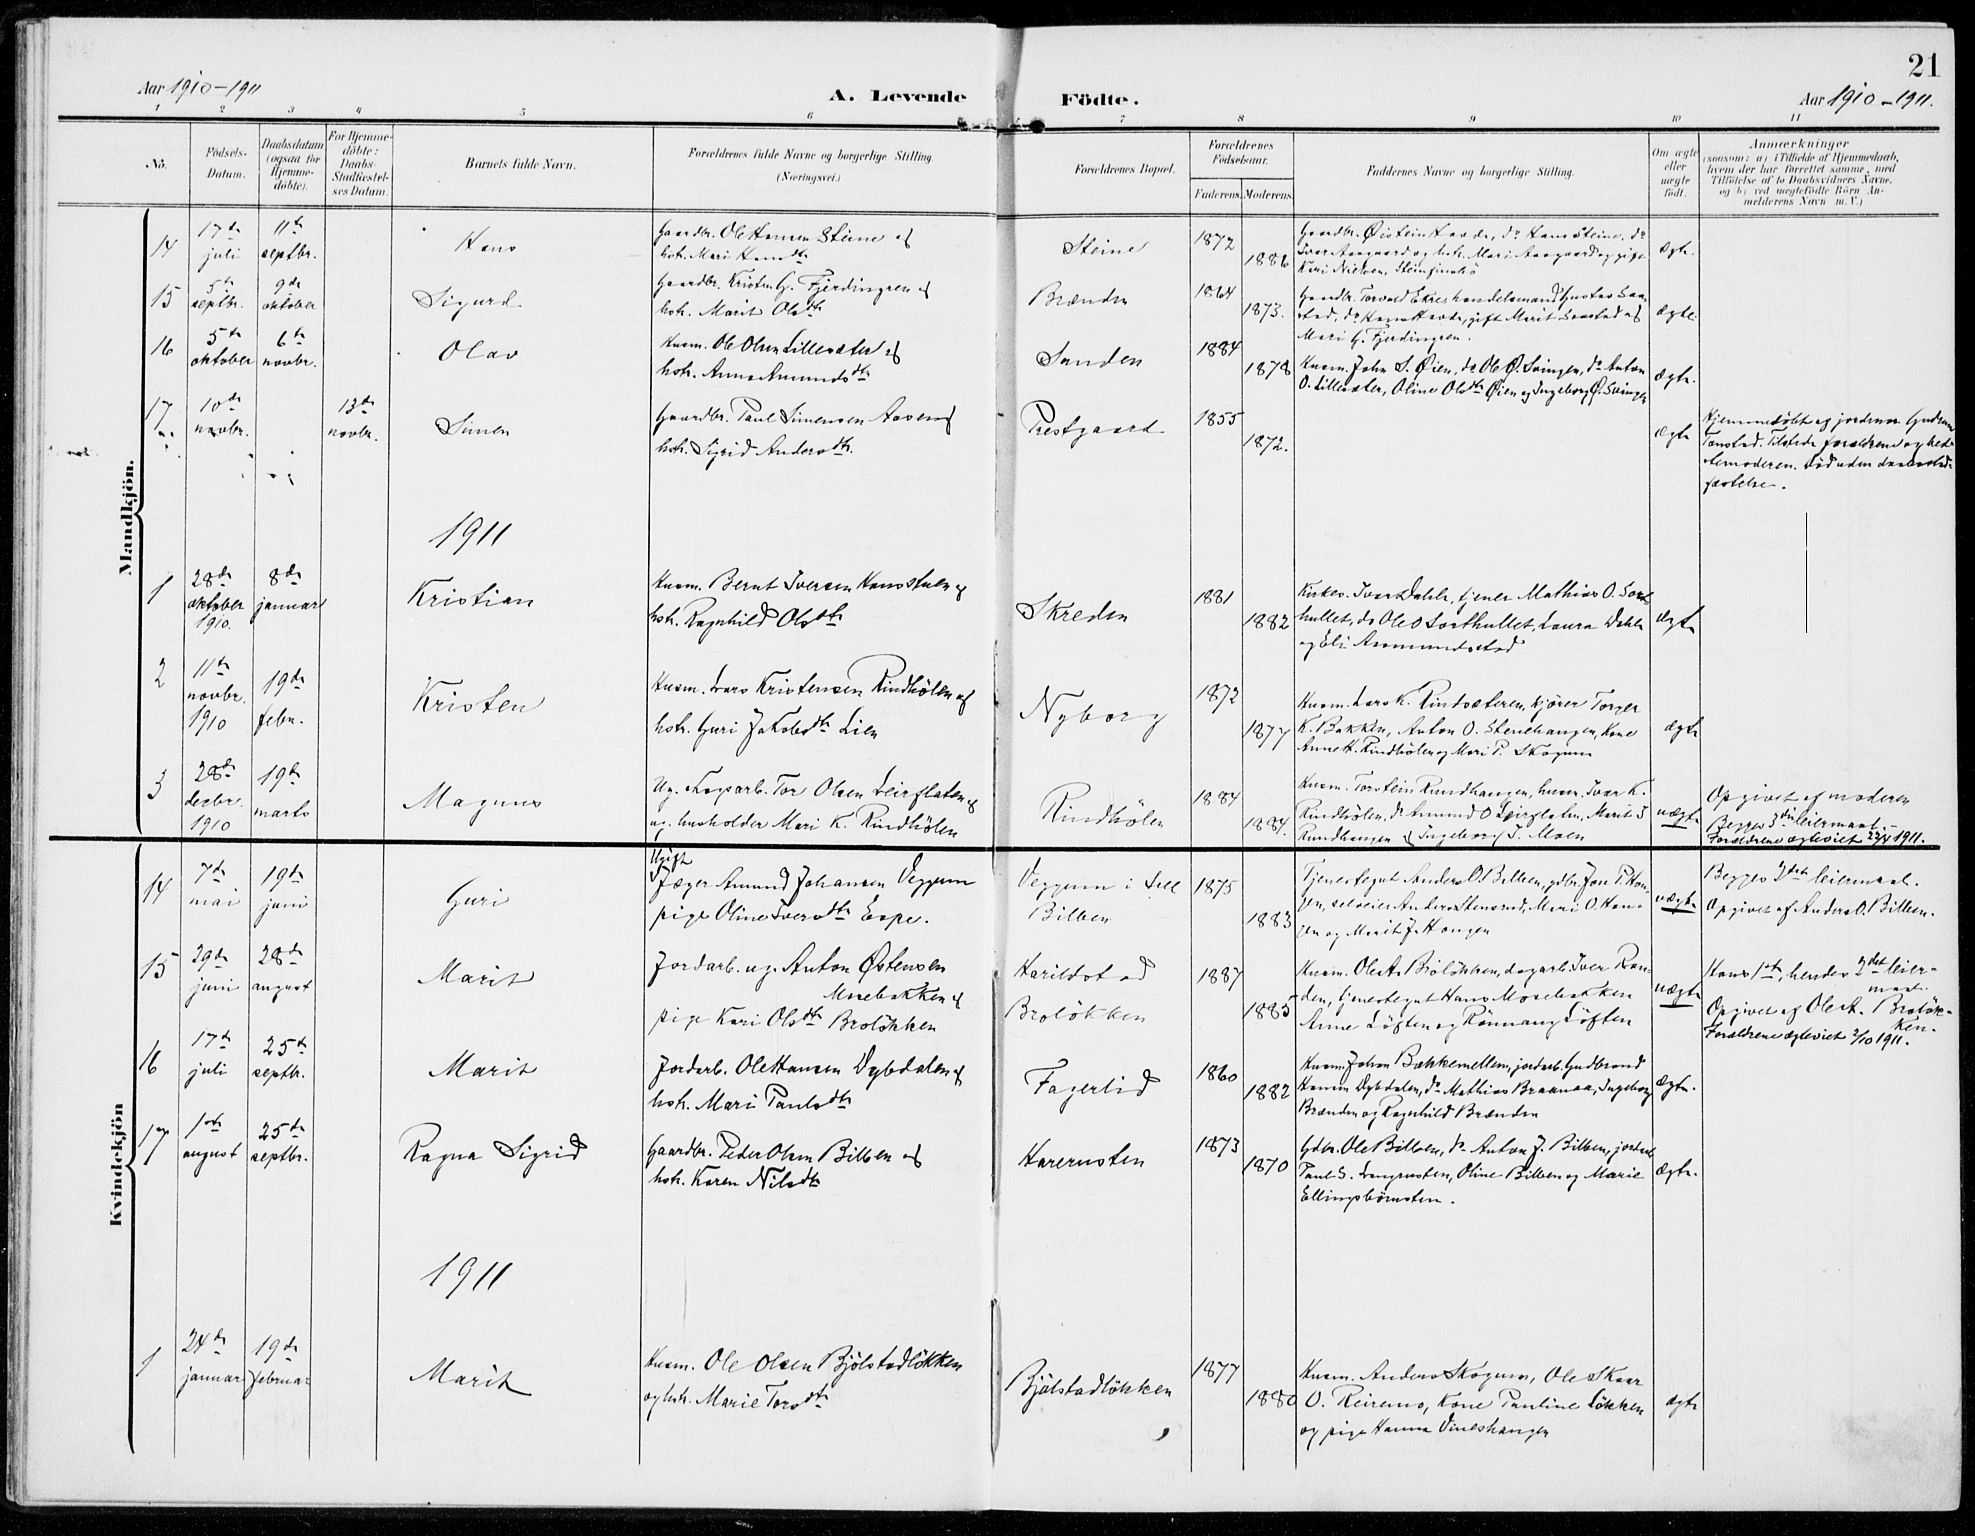 21
Aar 1910–1911
A. Levende Födte.
Aar 1910–1911.
1 2 3 4 5 6 7 8 9 10 11
No.
Födsels-
Datum.
Daabsdatum
(ogsaa for
Hjemme-
döbte).
For Hjemme-
döbte:
Daabs-
Stadfæstel-
ses Datum.
Barnets fulde Navn.
Forældrenes fulde Navne og borgerlige Stilling.
(Næringsvei.)
Forældrenes Bopæl.
Forældrenes
Födselsaar.
Faderens. Moderens.
Faddernes Navne og borgerlige Stilling.
Om ægte
eller
uægte
födt.
Anmærkninger
(saasom: a) i Tilfælde af Hjemmedaab,
hvem der har forrettet samme, med
Tilföielse af to Daabsvidners Navne,
og b) ved uægtefödte Börn An-
melderens Navn m. V.)
Mandkjön.
14
17de juli
11te septbr.
Hans
Gaardbr. Ole Hansen Steine af
hstr. Mari Hansdtr
Steine
1872
1886
Gaardbr. Øistein Haade, do Hans Steine, do
Ivar Aasgaard og hstr. Mari Aasgaard og pige
Kari Nielsen,
ægte.
15
5te septbr.
9de oktober
Sigurd
Gaardbr. Kristen G. Fjerdingren af
hstr. Marit Olsdtr
Brænden
1864
1873.
Gaardbr. Torvald Ekre, handelsmand Gustav Saa-
stad, do Hans gift Marit Saastad af
Mari G. Fjerdingren.
ægte.
16
5te oktober
6te novbr.
Olav
Husm. Ole Olsen Lillesæter af
hstr. Anna Amundsdtr
Sanden
1884
1878
Husm. John S. Øien, do Ole Ø. Svingen, do Anton
O. Lillesæter, Oline Olsdtr Øien og Ingeborg Ø. Svingen
ægte.
17
10de novbr.
13de novbr.
Simen
Gaardbr. Paul Simensen Aasen af
hstr. Sigrid Andersdtr.
Prestgaard
1855
1872.
ægte
Hjemmedøbt af jordmor Gudrun
Tonstad. Tilstede forældrene og bed-
stemoderen. Død uden daabsstad-
fæstelse.
1911
1
28de oktober 1910.
8de januar
Kristian
Husm. Bernt Iversen Hansstuen og
hstr. Ragnhild Olsdtr
Skreden
1881
1882
Kirkes. Ivar Dahle, tjener Mathias O. Sort-
hullet, do Ole O Sorthullet, Laura Dahle
og Eli Aasmundstad
ægte
2
11te novbr. 1910
19de febr.
Kristen
Husm. Lars Kristensen Rindhølen af
hstr. Guri Jakobsdtr Lien
Nyborg
1872
1877
Husm. Lars K. Rindsæteren, kjører Torger
K. Bakken, Anton O. Stenehaugen, Kone
Anne H. Rindhølen og Mari P. Skogum
ægte
3
28de decbr. 1910
19de marts
Magnus
Ug. Skogarb. Tor Olsen Leirflaten og
ug. husholder Mari K. Rindhølen
Rindhølen
1884
1884.
Husm. Torstein Rundhaugen, husm. Ivar K.
Rindhølen, do Amund O Leirflaten, Marit I
Rundhaugen & Ingeborg I. Moen
uægte
Opgivet af moderen
Begges 3die leiermaal.
Forældrene ægteviet 22/4 1911.
Kvindekjön
14
7de mai
19de juni
Guri
Ugift
Jæger Amund Johansen Veggum
pige Oline Iversdtr Espe.
Veggum i Sell
Bilben
1875
1883
Tjenestegut Anders O. Bilben, gdbr. Jon P. Hau-
gen, selveier Anders Stensrud, Mari O. Hau-
gen og Marit J. Haugen
uægte
Begges 3det leiermaal.
Opgivet af Anders O. Bilben.
15
29de juni
28de august
Marit
Jordarb. ug. Anton Østensen
Mosebakken af
pige Kari Olsdtr Broløkken
Harildstad
Broløkken
1887
1885
Husm. Ole A. Broløkken, dagarb. Iver Ran-
den, tjenestegut Hans Mosebakken
Anne Løften og Rønnaug Løften
uægte
Hans 1ste, hendes 2det leier-
maal.
Opgivet af Ole A. Broløk-
ken.
Forældrene ægteviet 2/10 1911.
16
17de juli
25de septbr.
Marit
Jordarb. Ole Hansen Dybdalen af
hstr. Mari Paulsdtr
Fagerlid
1860
1882
Husm. Johan Bækkemellem, jordarb. Gudbrand
Hansen Dybdalen, do Mathias Braanaa, Ingeborg
Brænden og Ragnhild Brænden
ægte.
17
1ste august
25de septbr.
Ragna Sigrid
Gaardbr. Peder Olsen Bilben af
hstr. Karen Nilsdtr
Harerusten
1873
1870
Gdbr. Ole Bilben, do Anton J. Bilben, jordarb
Paul S. Langrusten, Oline Bilben og Marie
Ellingsbørusten.
ægte.
1911
1
24de januar
19de februar
Marit
Husm. Ole Olsen Bjølstadløkken
og hstr. Marie Torsdtr
Bjølstadløkken
1877
1880
Husm. Anders Skogum, Ole Skaar
O. Reiremo, Kone Pauline Løkken
og pige Hanna Vineshaugen
ægte